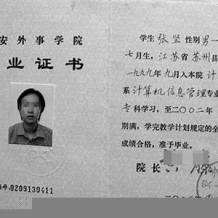 安外事学院
业证书
学生 张坚 性别 男 一
七月生，江苏省苏州县
一九九九年九月入本院 计
系 计算机信息管理专业
专科学习，至二〇〇二年
别满，学完教学计划规定的全
成绩合格，准予毕业。
院长
号.0209130411